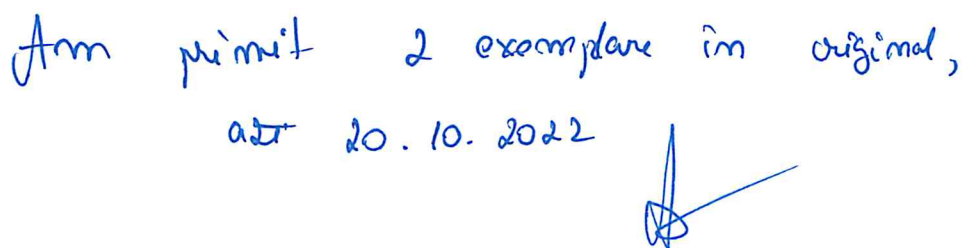 Am primit 2 exemplare în original,
azi 20.10.2022